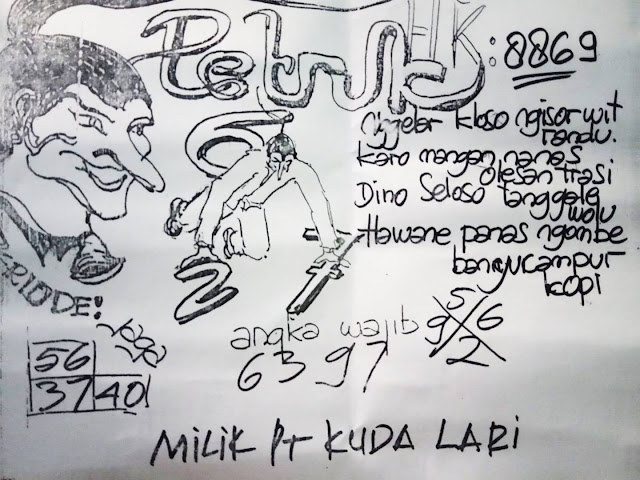 Petruk HK: 8869
Nggelar kloso ngisor wit
randu.
Karo mangan nanas
olesan trasi
Dino Seloso tanggale
wolu
Hawane panas ngombe
banyu campur
kopi
6
2 7
RIODE:
56
37 40
angka wajib
6397
5
9 6
2
MILIK PT KUDA LARI